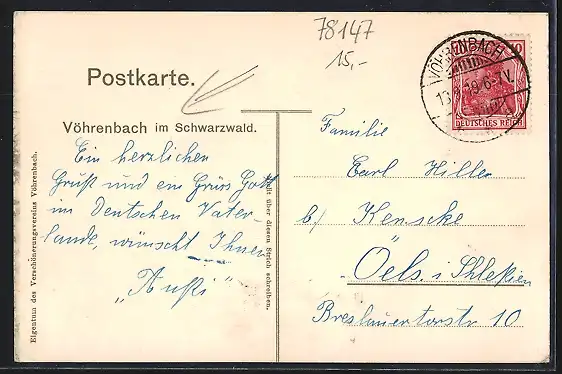 78147
15,-
Postkarte.
Vöhrenbach im Schwarzwald.
Ein herzlichen
Gruß und ein Grüss Gott
im Deutschen Vater-
lande, wünscht Ihnen
Eigentum des Verschönerungsvereins Vöhrenbach.
Nicht über diesen Strich schreiben.
VÖHRENBACH
10
DEUTSCHES REICH
Familie
Carl Hiller
b/ Kenscke
Oels. i Schleßien
Breslauertorstr 10